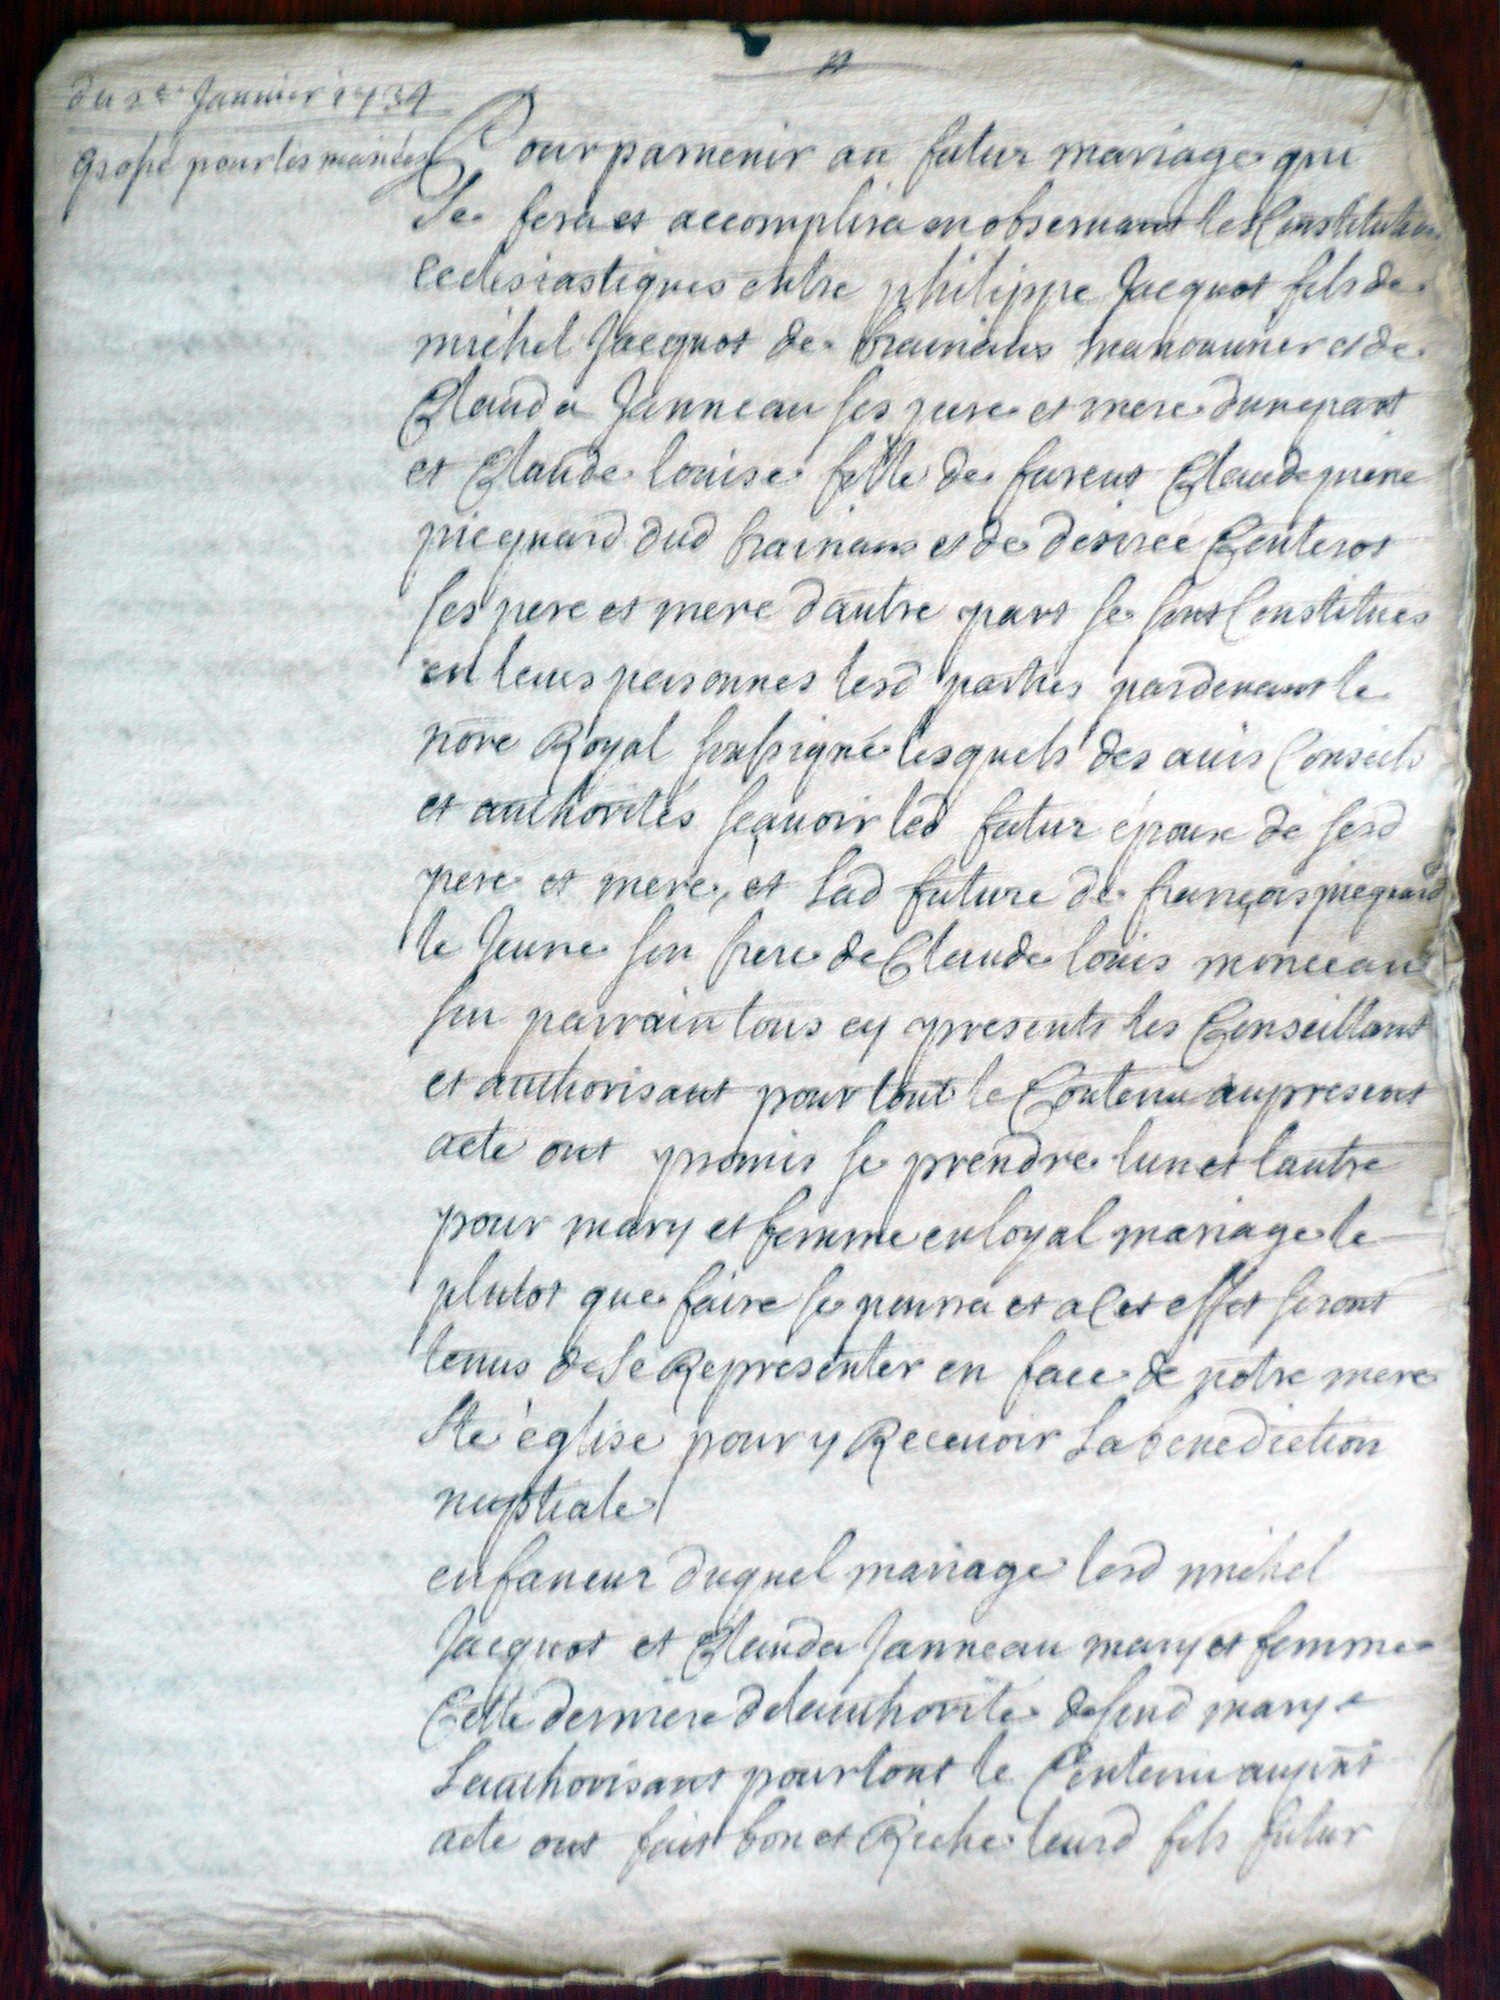 du 2e Janvier 1734
grossé pour les mariés
Pour parvenir au futur mariage qui
Se fera et accomplira en observant les Constitutions
Ecclesiastiques entre philippe Jacquot fils de
michel Jacquot de brainans manouvrier et de
Clauda Janneau ses pere et mere d'une part
et Claude louise fille de furent Claude pierre
piequard dud brainans et de desirée Couterot
ses pere et mere dautre part se sont Constitués
en leurs personnes lesd parties pardevant le
nore Royal soubsigné lesquels des avis Conseils
et authorités sçavoir led futur époux de sesd
pere et mere, et Lad future de françois piequard
le Jeune son frere de Claude louis monceau
son parrain tous cy presents les Conseillant
et authorisant pour tout le Contenu au present
acte ont promis se prendre lun et lautre
pour mary et femme en loyal mariage le
plutot que faire se pourra et a Cet effet seront
tenus de Se Representer en face de notre mere
Ste église pour y Recevoir La benediction
nuptiale
en faveur duquel mariage lesd michel
Jacquot et Clauda Janneau mary et femme
Cette derniere de lauthorité de sond mary
Lauthorisant pour tout le Contenu au pnt
acte ont fait bon et Riche leurd fils futur